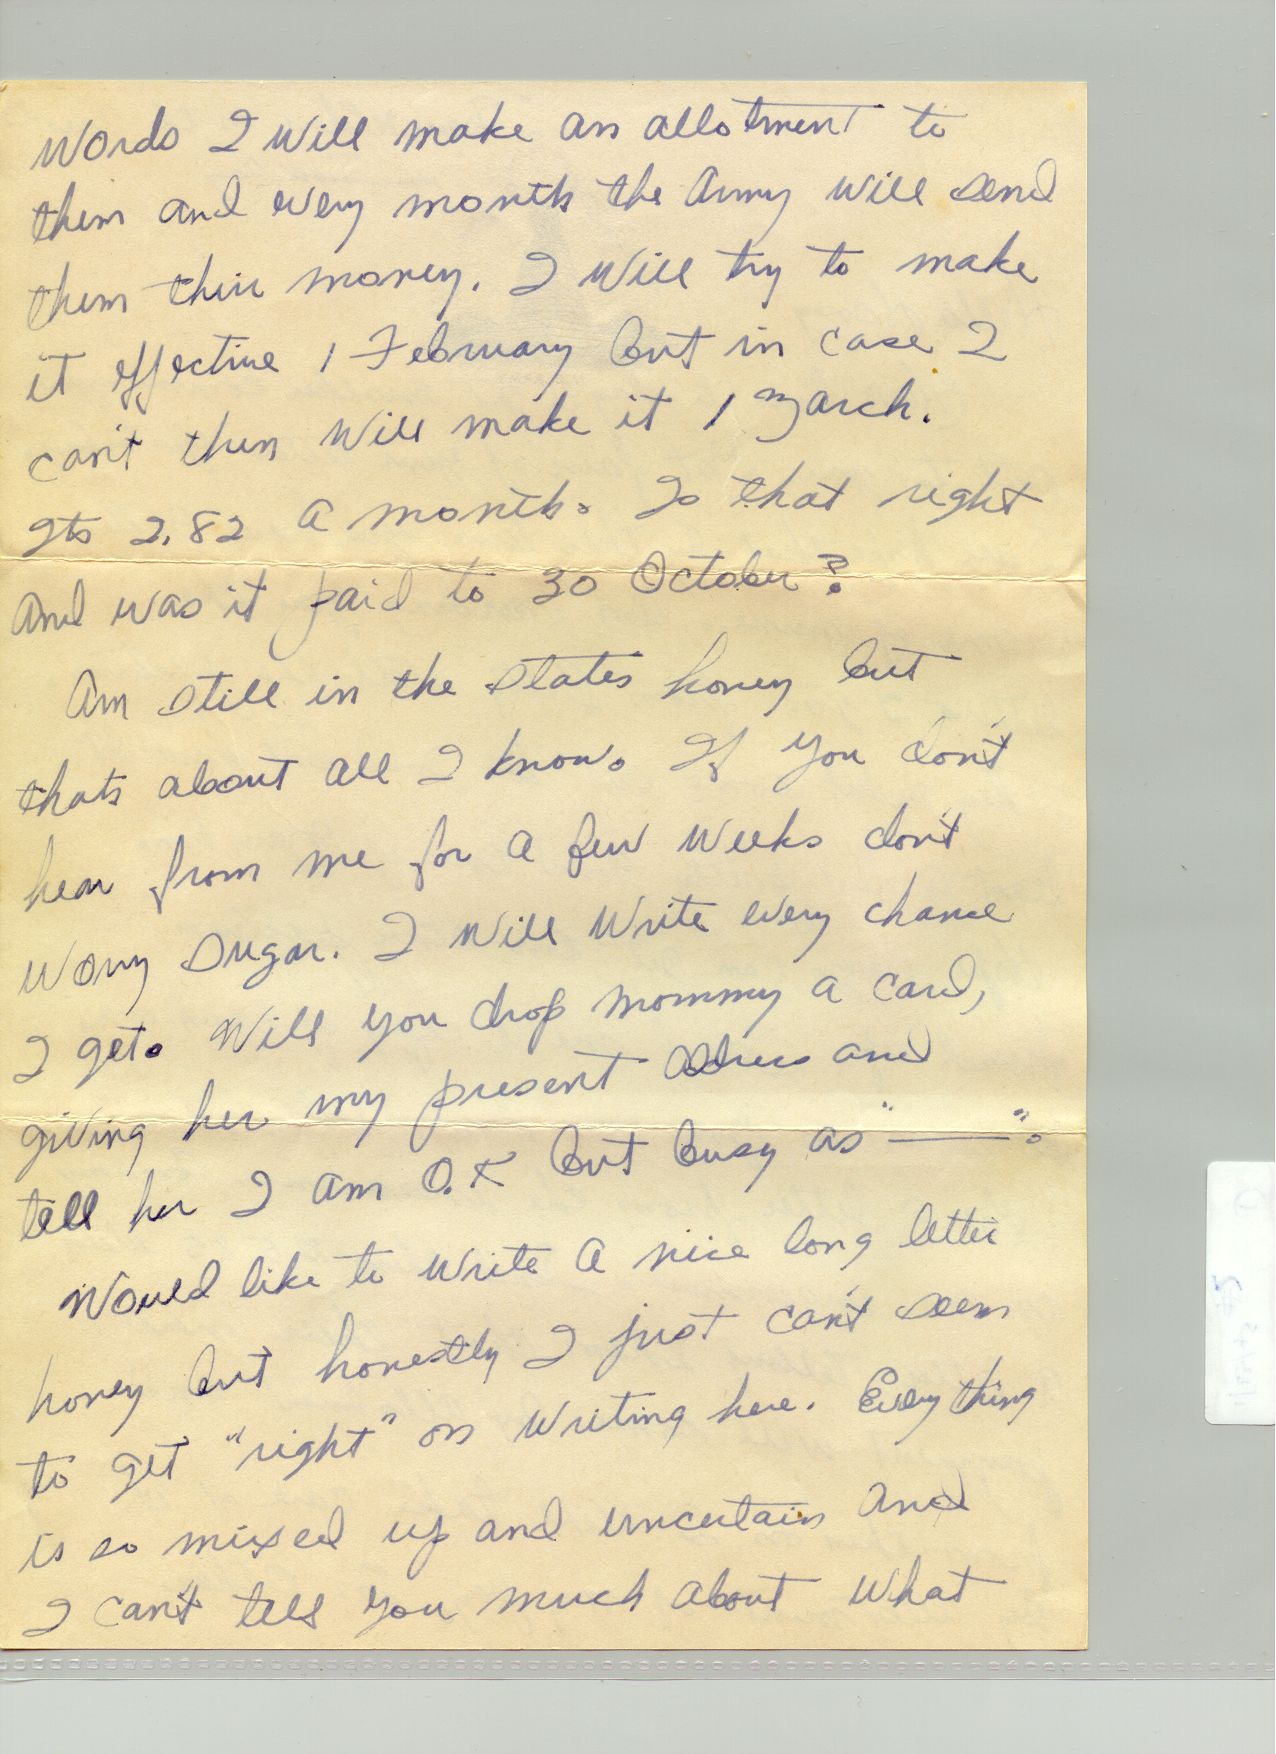 words I will make an allotment to
them and every month the Army will send
them their money. I will try to make
it effective 1 February but in case I
can't then will make it 1 March.
Its 2.82 a month. Is that right
and was it paid to 30 October?
Am still in the States honey but
thats about all I know. If you don't
hear from me for a few weeks don't
worry Sugar. I will write every chance
I get. Will you drop mommy a card,
giving her my present address and
tell her I am O.K but busy as "———".
Would like to write a nice long letter
honey but honestly I just can't seem
to get "right" on writing here. Everything
is so mixed up and uncertain and
I can't tell you much about what